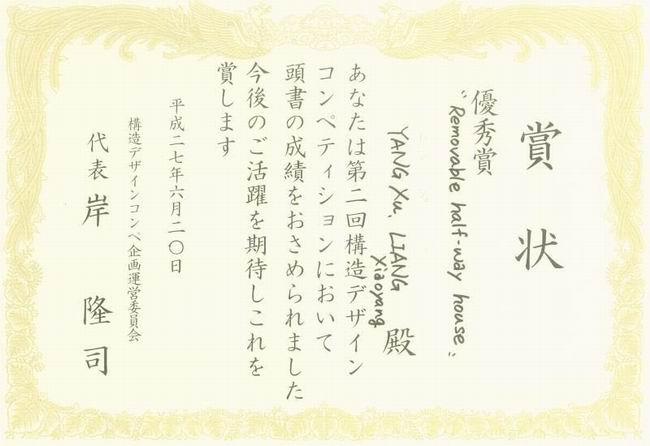 賞状
優秀賞
"Removable half-way house"
YANG Xu, LIANG Xiaoyang
殿
あなたは第二回構造デザイン
コンペティションにおいて
頭書の成績をおさめられました
今後のご活躍を期待しこれを
賞します
平成二七年六月二〇日
構造デザインコンペ企画運営委員会
代表 岸 隆司